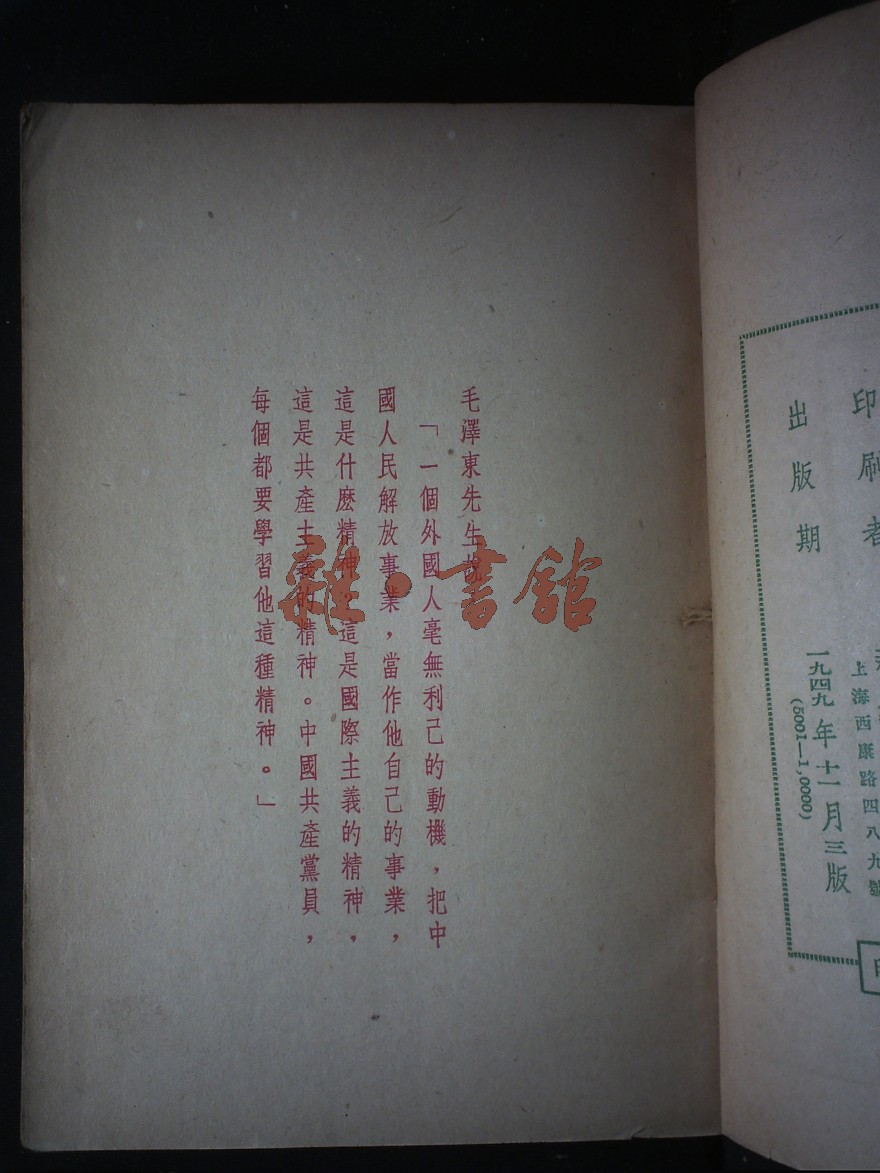 印刷者
上海西康路四八九號
出版期
一九四九年十一月三版
(5001—1,0000)
毛澤東先生說
「一個外國人毫無利己的動機，把中
國人民解放事業，當作他自己的事業，
這是什麽精神？這是國際主義的精神，
這是共產主義的精神。中國共產黨員，
每個都要學習他這種精神。」
雜·書館